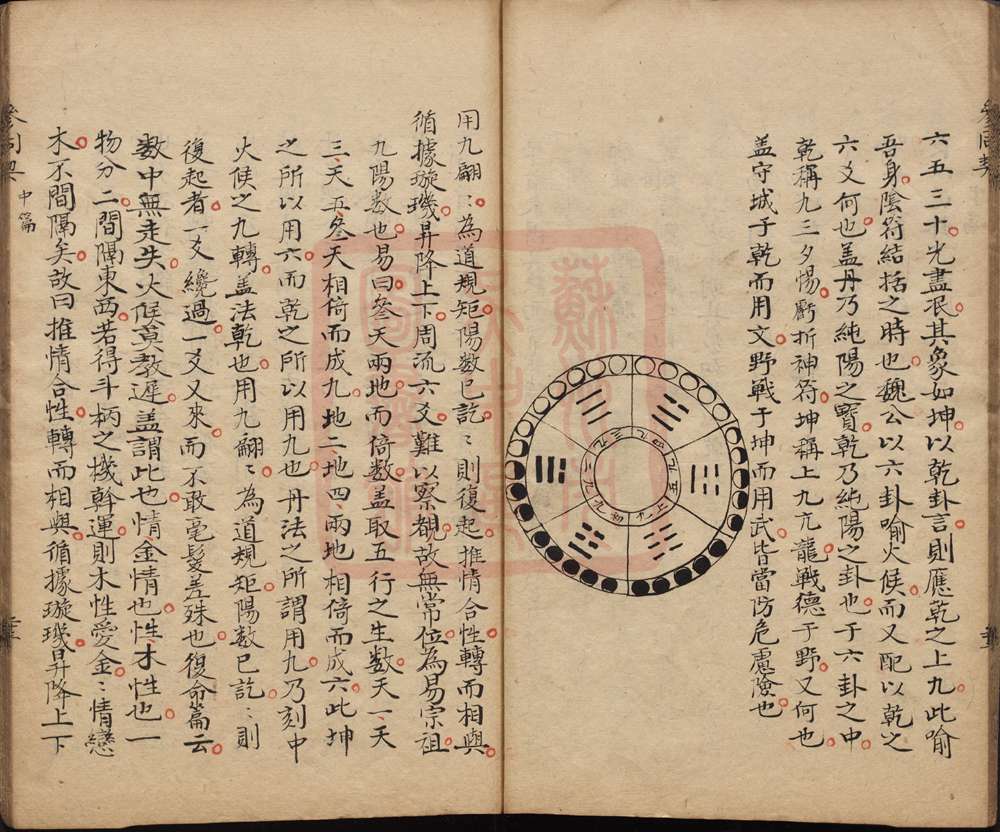 六五三十光盡泯其象如坤以乾卦言則應乾之上九此喻
吾身陰符結括之時也魏公以六卦喻火候而又配以乾之
六爻何也盖丹乃純陽之寶乾乃純陽之卦也于六卦之中
乾稱九三夕惕虧折神符坤稱上九亢龍戰德于野又何也
盖守城于乾而用文野戰于坤而用武皆當防危慮險也
初九
九二
九三
九四
九五
上九
用九翩〻為道規矩陽数已訖〻則復起推情合性轉而相與
循據璇璣昇降上下周流六爻難以察覩故無常位為易宗祖
九陽数也易曰叁天兩地而倚数盖取五行之生数天一天
三天五叁天相倚而成九地二地四兩地相倚而成六此坤
之所以用六而乾之所以用九也丹法之所謂用九乃刻中
火候之九轉盖法乾也用九翩〻為道規矩陽数已訖〻則
復起者一爻纔過一爻又來而不敢毫髮差殊也復命篇云
数中無走失火候莫教遲盖謂此也情金情也性木性也一
物分二間隔東西若得斗柄之機斡運則木性愛金〻情戀
木不間隔矣故曰推情合性轉而相與循據璇璣昇降上下
參同契
中篇
參同契